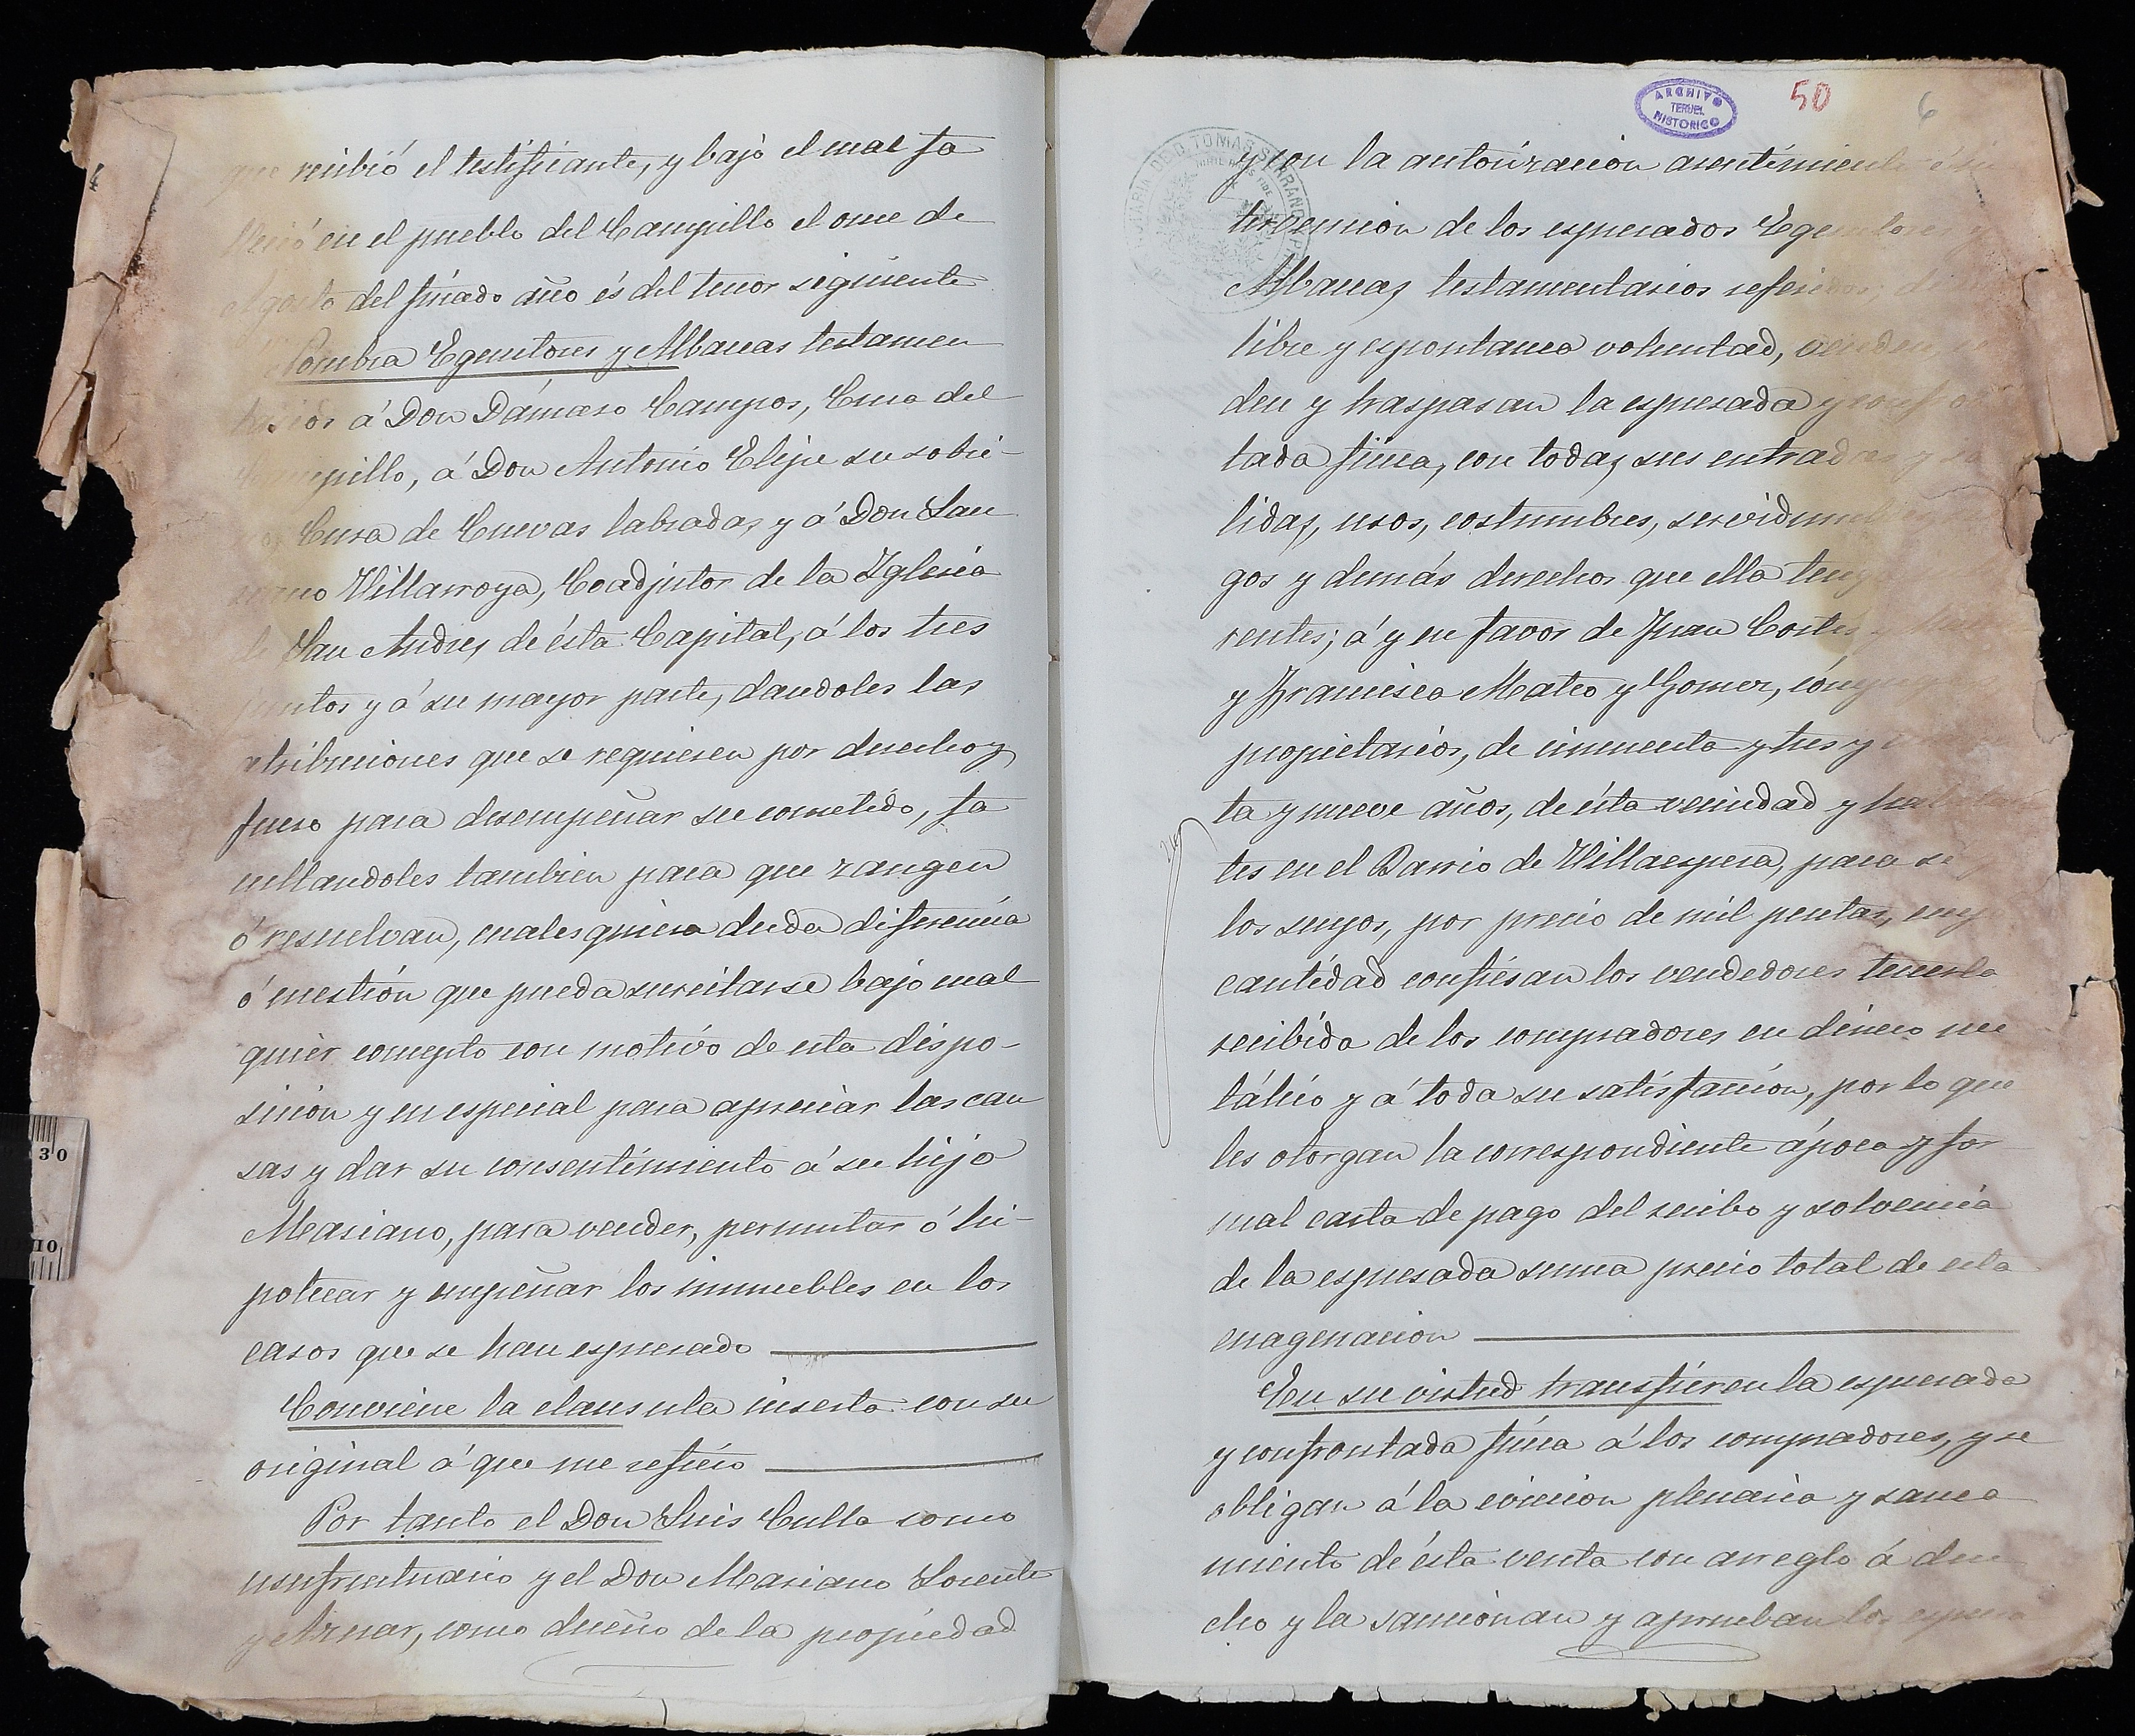 que recibió el testificante, y bajo el cual fa
lleció en el pueblo del Campillo el once de
Agosto del finado año és del tenor siguiente
Nombra Egecutores y Albaceas testamen
tarios á Don Dámaso Campos, Cura del
Campillo, á Don Antonio Elipe su sobri-
Cura de Cuevas labradas, y á Don San
Villarroya, Coadjutor de la Yglesia
de San Andres de ésta Capital, á los tres
juntos y á su mayor parte, dandoles las
atribuciones que se requieren por derecho y
fuero para desempeñar su cometido, fa
cultandoles tambien para que zangen
ó resuelvan, cualesquiera duda diferencia
ó cuestión que pueda suscitarse bajo cual
quier concepto con motivo de esta dispo-
sicion y en especial para apreciar las cau
sas y dar su consentimiento á su hijo
Mariano, para vender, permutar ó hi-
potecar y empeñar los inmuebles en los
casos que se han espresado
Conviene la clausula inserta con su
original á que me refiero
Por tanto el Don Luis Culla como
usufructuario y el Don Mariano Lorente
y Aznar, como dueño de la propiedad
ARCHIVO
TERUEL
HISTORICO
50
6
D. TOMAS SERRANO
y con la autorizacion asentimiento é in
tervencion de los espresados Egecutores y
Albaceas testamentarios referidos, de
libre y espontanea voluntad, venden, ce
den y traspasan la espresada y confron
tada finca, con todas sus entradas y sa
lidas, usos, costumbres, servidumbres
gos y demás derechos que ella tenga
rentes; á y en favor de Juan Cortes
y Francisca Mateo y Gomez, cónyuges
propietarios, de cincuenta y tres y
ta y nueve años, de ésta vecindad y habitan
tes en el Barrio de Villaespesa, para sí y
los suyos, por precio de mil pesetas, cuya
cantidad confiesan los vendedores tenerla
recibida de los compradores en dinero me
tálico y á toda su satisfaccion, por lo que
les otorgan la correspondiente ápoca y for
mal carta de pago del recibo y solvencia
de la espresada suma precio total de esta
enagenacion
En su virtud transfieren la espresada
y confrontada finca á los compradores, y se
obligan á la eviccion plenaria y sanea
miento de ésta venta con arreglo á dere
cho y la sancionan y aprueban los espresa
30
10